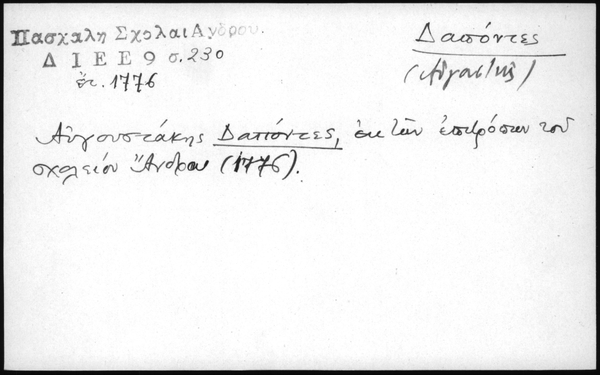 Πασχαλη Σχολαι Ανδρου.
Δ Ι Ε Ε 9 σ. 230
ἔτ. 1776
Δαπόντες
(Αὐγουστῆς)
Αὐγουστάκης Δαπόντες, ἐκ τῶν ἐπιτρόπων τοῦ
σχολείου Ἄνδρου (1776).